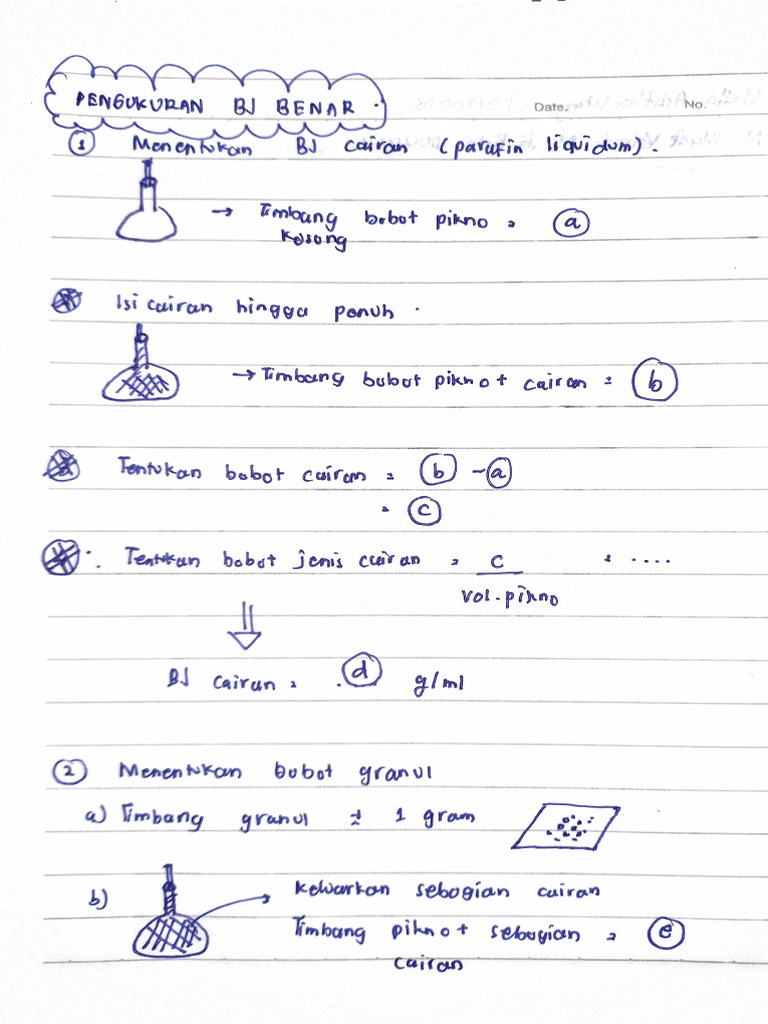 PENGUKURAN BJ BENAR.
Date. No.
1 Menentukan BJ cairan (parafin liquidum).
→ Timbang bobot pikno = a
kosong
Isi cairan hingga penuh.
→ Timbang bobot pikno + cairan = b
Tentukan bobot cairan = b - a
= c
∴ Tentukan bobot jenis cairan = c = ....
vol. pikno
BJ cairan = d g/ml
2 Menentukan bobot granul
a) Timbang granul ± 1 gram
b) Keluarkan sebagian cairan
Timbang pikno + sebagian = e
cairan